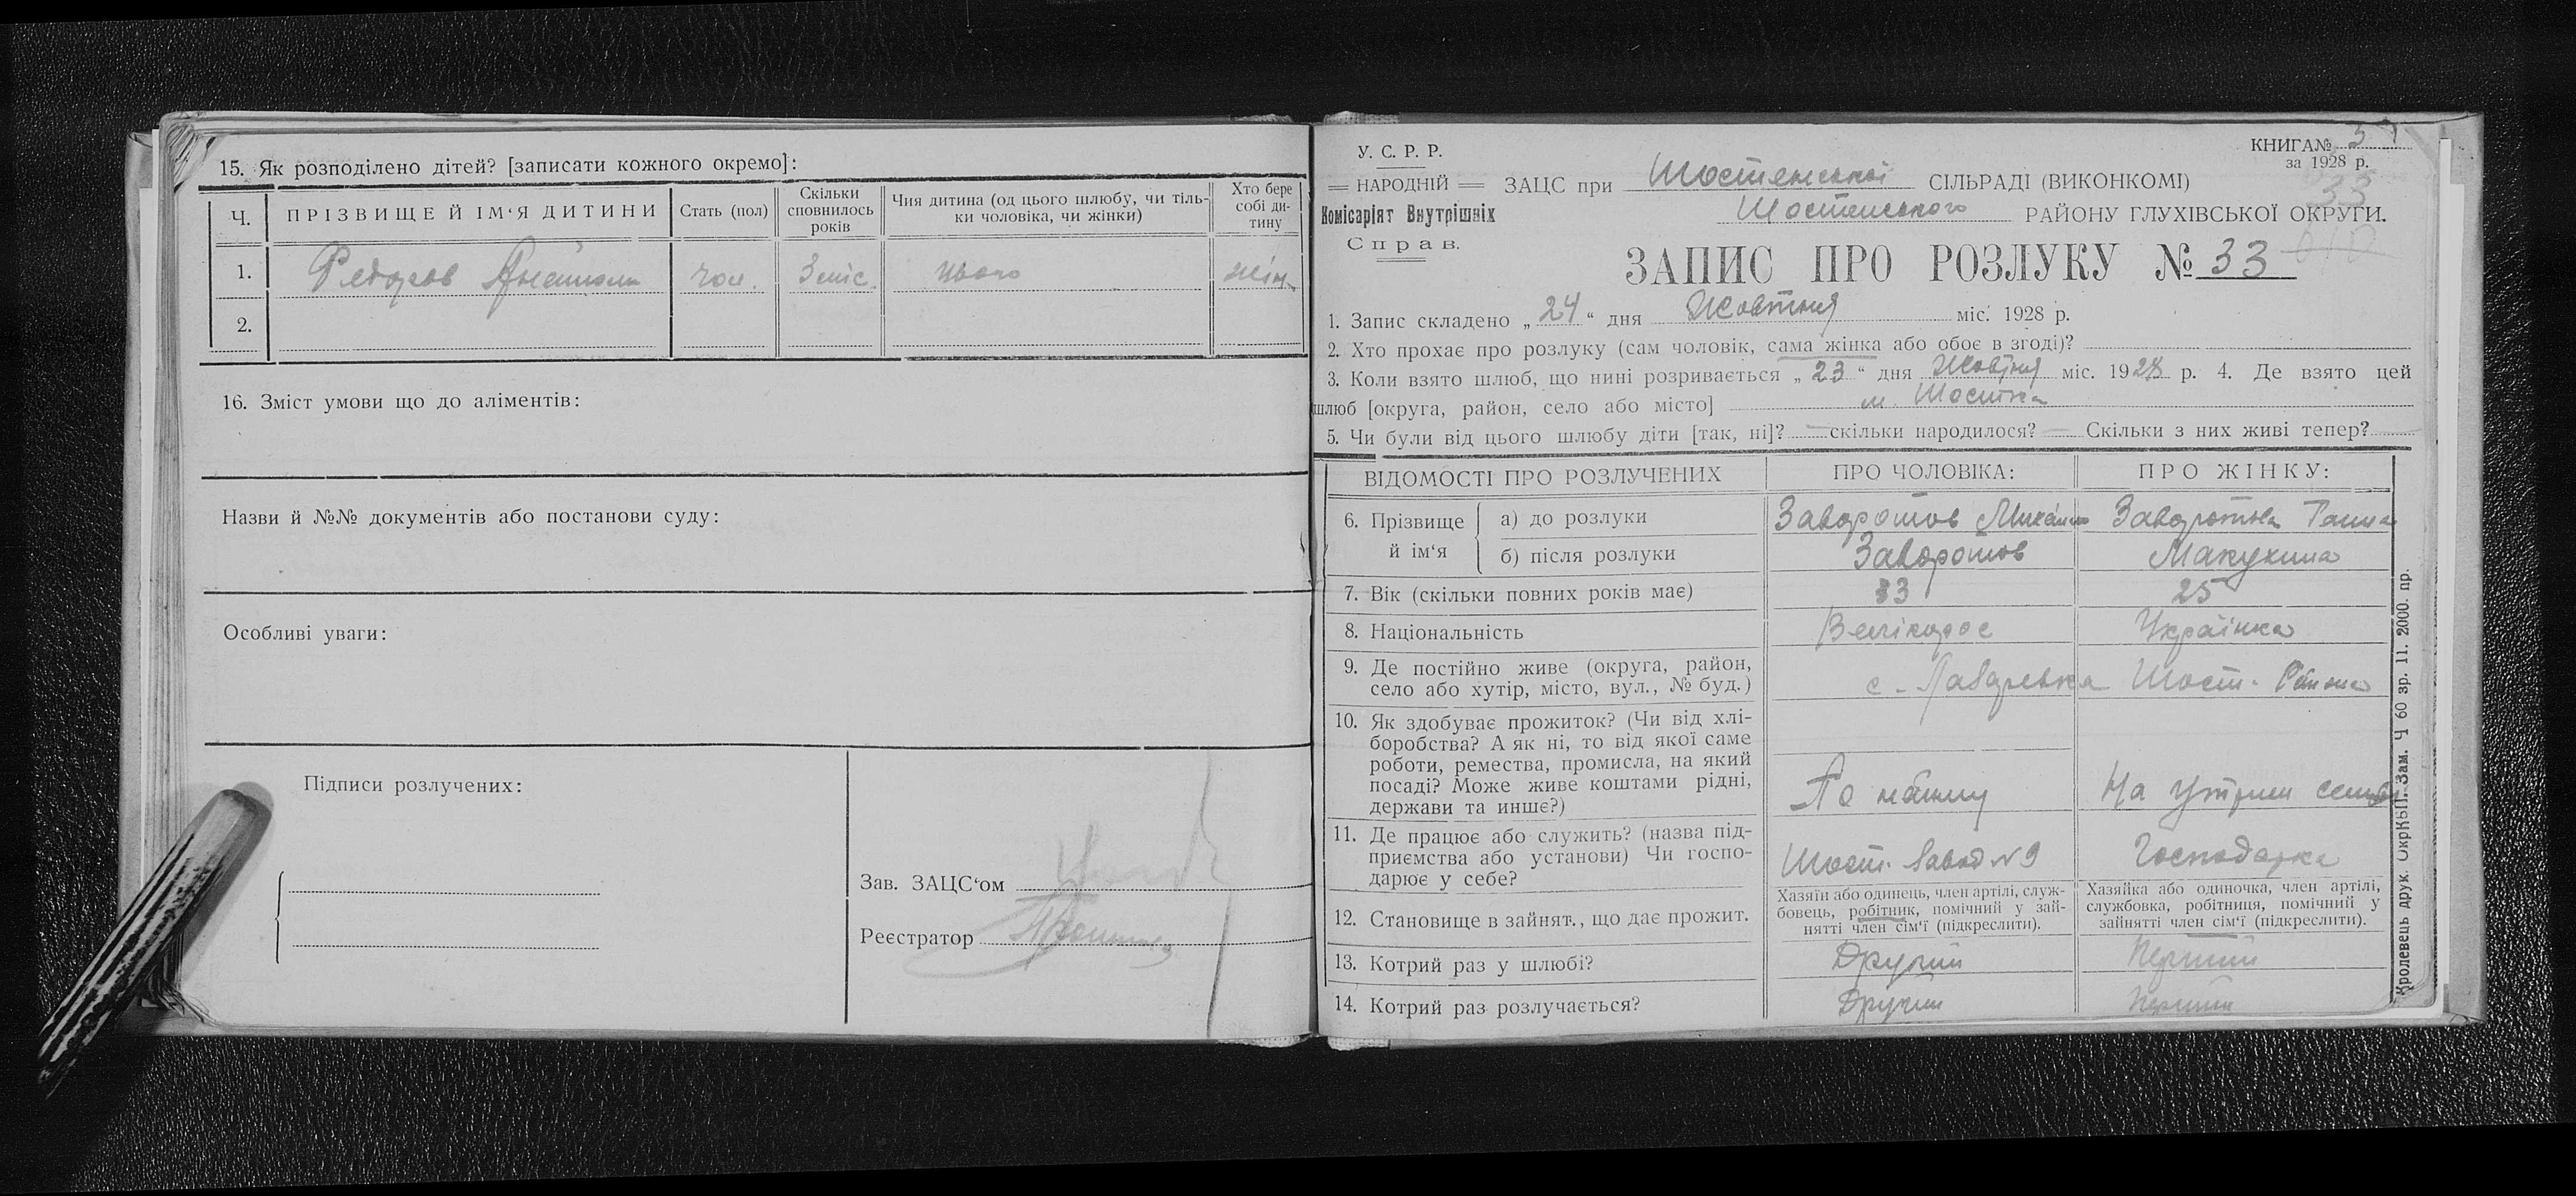 15. Як розподілено дітей? [записати кожного окремо]:
Ч. ПРІЗВИЩЕ Й ІМ‘Я ДИТИНИ Стать (пол) Скільки сповнилось років Чия дитина (од цього шлюбу, чи тіль- ки чоловіка, чи жінки) Хто бере собі ди- тину
1. Федоров Анатолій чол. 3 міс. цього жін.
2.
16. Зміст умови що до аліментів:
Назви й №№ документів або постанови суду:
Особливі уваги:
Підписи розлучених:
Зав. ЗАЦС‘ом
Реєстратор
У. С. Р. Р.
НАРОДНІЙ
Комісаріят Внутрішніх
Справ.
КНИГА № 3
за 1928 р.
33
ЗАЦС при Шостенської СІЛЬРАДІ (ВИКОНКОМІ)
Шостенського РАЙОНУ ГЛУХІВСЬКОЇ ОКРУГИ.
ЗАПИС ПРО РОЗЛУКУ № 33
1. Запис складено „24“ дня Жовтня міс. 1928 р.
2. Хто прохає про розлуку (сам чоловік, сама жінка або обоє в згоді)?
3. Коли взято шлюб, що нині розривається „23“ дня Жовтня міс. 192 р. 4. Де взято цей
шлюб [округа, район, село або місто] м. Шостка
5. Чи були від цього шлюбу діти [так, ні]? — скільки народилося? — Скільки з них живі тепер?
ВІДОМОСТІ ПРО РОЗЛУЧЕНИХ ПРО ЧОЛОВІКА: ПРО ЖІНКУ:
6. Прізвище й ім‘я а) до розлуки Заворотов Михаил Заворотова
б) після розлуки Заворотов Макухина
7. Вік (скільки повних років має) 33 25
8. Національність Велікорос Українка
9. Де постійно живе (округа, район,
село або хутір, місто, вул., № буд.) с. Шост. Району
10. Як здобуває прожиток? (Чи від хлі-
боробства? А як ні, то від якої саме
роботи, ремества, промисла, на який
посаді? Може живе коштами рідні,
держави та инше?) По найму На утрим
11. Де працює або служить? (назва під-
приємства або установи) Чи госпо-
дарює у себе? Шост. Завод № 9 Господарка
12. Становище в зайнят., що дає прожит.
Хазяїн або одинець, член артілі, служ-
бовець, робітник, помічний у зай-
нятті член сім‘ї (підкреслити).
Хазяйка або одиночка, член артілі,
службовка, робітниця, помічний у
зайнятті член сім‘ї (підкреслити).
13. Котрий раз у шлюбі? Другий Перший
14. Котрий раз розлучається? Другий Перший
Кролевець друк. ОкрКВП. Зам. Ч 60 зр. 11. 2000. пр.